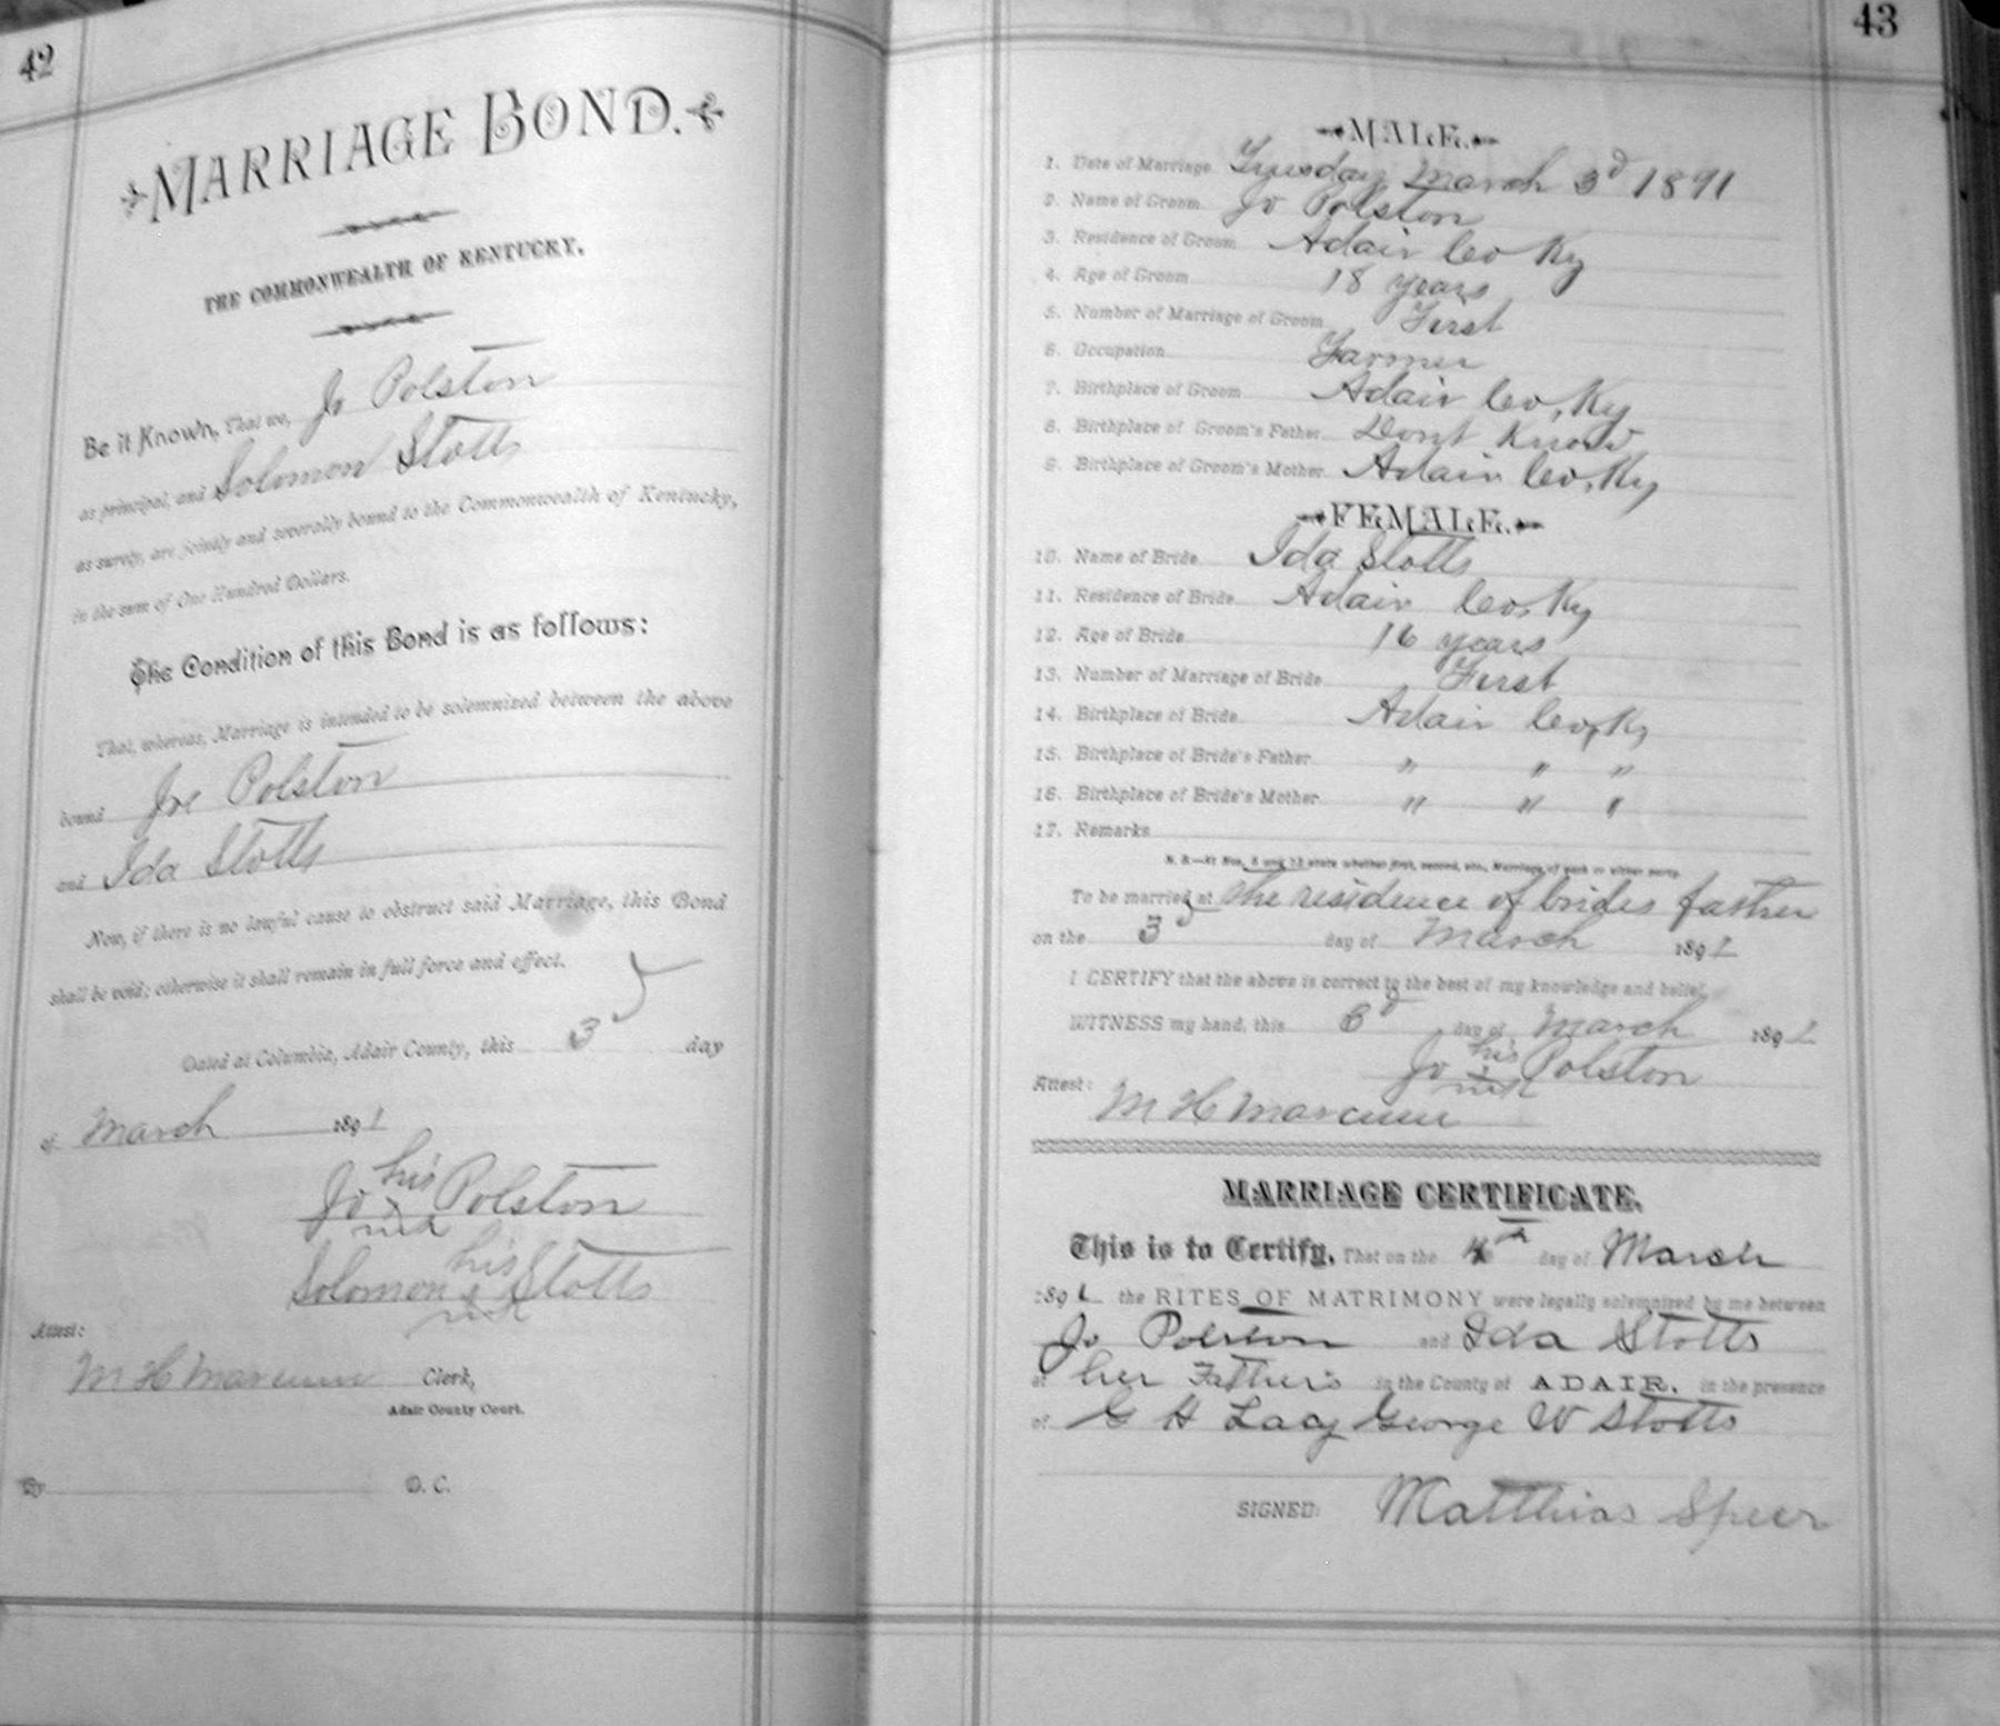 42
MARRIAGE BOND.
THE COMMONWEALTH OF KENTUCKY.
Be it Known, That we, Jo Polston
as principal, and Solomon Stotts
as surety, are jointly and severally bound to the Commonwealth of Kentucky,
in the sum of One Hundred Dollars.
The Condition of this Bond is as follows:
That, whereas, Marriage is intended to be solemnized between the above
bound Joe Polston
and Ida Stotts
Now, if there is no lawful cause to obstruct said Marriage, this Bond
shall be void; otherwise it shall remain in full force and effect.
Dated at Columbia, Adair County, this 3d day
of March 1891
Jo his x mark Polston
Solomon his x mark Stotts
Attest:
M H Marcum Clerk,
Adair County Court.
By D. C.
43
MALE.
1. Date of Marriage Tuesday March 3d 1891
2. Name of Groom Jo Polston
3. Residence of Groom Adair Co Ky
4. Age of Groom 18 years
5. Number of Marriage of Groom First
6. Occupation Farmer
7. Birthplace of Groom Adair Co, Ky
8. Birthplace of Groom's Father Dont Know
9. Birthplace of Groom's Mother Adair Co, Ky
FEMALE.
10. Name of Bride Ida Stotts
11. Residence of Bride Adair Co, Ky
12. Age of Bride 16 years
13. Number of Marriage of Bride First
14. Birthplace of Bride Adair Co, Ky
15. Birthplace of Bride's Father " " "
16. Birthplace of Bride's Mother " " "
17. Remarks
N. B.—At Nos. 5 and 13 state whether first, second, etc., Marriage of each or either party.
To be married at the residence of brides father
on the 3d day of March 1891
I CERTIFY that the above is correct to the best of my knowledge and belief.
WITNESS my hand, this day of March 1891
Jo his x mark Polston
Attest:
M H Marcum
MARRIAGE CERTIFICATE.
This is to Certify, That on the day of March
1891 the RITES OF MATRIMONY were legally solemnized by me between
Jo Polston and Ida Stotts
at her Father's in the County of ADAIR, in the presence
of G H Lacy George W Stotts
SIGNED: Matthias Speer